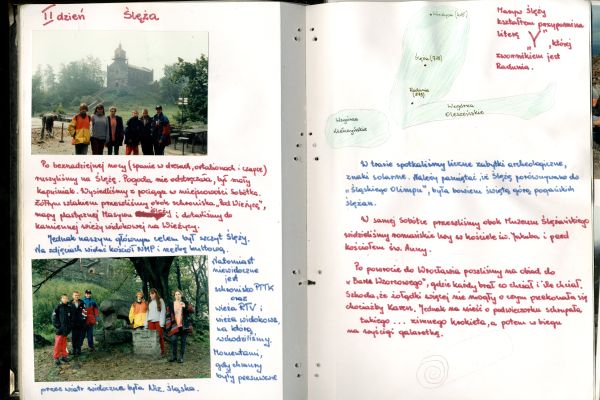 II dzień Ślęża
Po beznadziejnej nocy (spanie w dresach, ortalionach i czapce)
ruszyliśmy na Ślężę. Pogoda nie odstraszyła, był mały
kapuśniak. Wysiedliśmy z pociągu w miejscowości Sobótka.
Żółtym szlakiem przeszliśmy obok schroniska „Pod Wieżycą",
mapy plastycznej Masywu Ślęży i dotarliśmy do
kamiennej wieży widokowej na Wieżycy.
Jednak naszym głównym celem był szczyt Ślęży.
Na zdjęciach widać kościół NMP i rzeźbę kultową.
Natomiast
niewidoczne
jest
schronisko PTTK
oraz
wieża RTV i
wieża widokowa,
na którą
wchodziliśmy.
Momentami,
gdy chmury
były przesuwane
przez wiatr widoczna była Niz. Śląska.
Wieżyca (415)
Ślęża (718)
Radunia
(573)
Wzgórza
Oleszeńskie
Wzgórza
Kiełczyńskie
Masyw Ślęży
kształtem przypomina
literę
„Y", której
zwornikiem jest
Radunia.
W trasie spotkaliśmy liczne zabytki archeologiczne,
znaki solarne. Należy pamiętać, iż Ślężę porównywano do
„Śląskiego Olimpu", była bowiem świętą górą pogańskich
Ślężan.
W samej Sobótce przeszliśmy obok Muzeum Ślężańskiego
widzieliśmy romańskie lwy w kościele św. Jakuba i przed
kościołem św. Anny.
Po powrocie do Wrocławia poszliśmy na obiad do
„Baru Wzorcowego", gdzie każdy brał co chciał i ile chciał.
Szkoda, że żołądki więcej nie mogły o czym przekonała się
chociażby Karen. Jednak na wieść o podwieczorku schrupała
takiego ... zimnego krokieta, a potem w biegu
na wyścigi galaretkę.